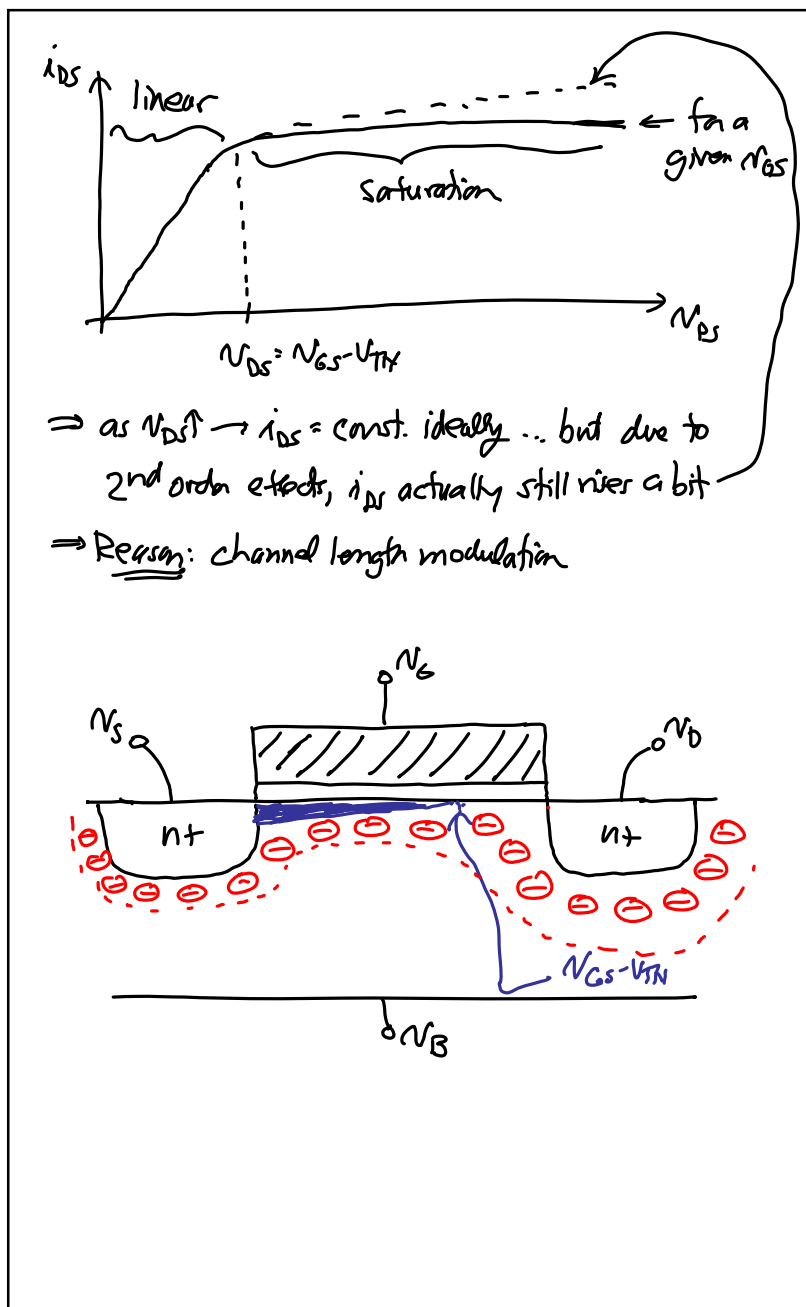 i_DS
linear
← for a
given v_GS
saturation
v_DS
v_DS = v_GS - V_TN
⇒ as v_DS↑ → i_DS = const. ideally ... but due to
2nd order effects, i_DS actually still rises a bit
⇒ Reason: channel length modulation
v_G
v_S
v_D
n+
n+
v_GS - V_TN
v_B